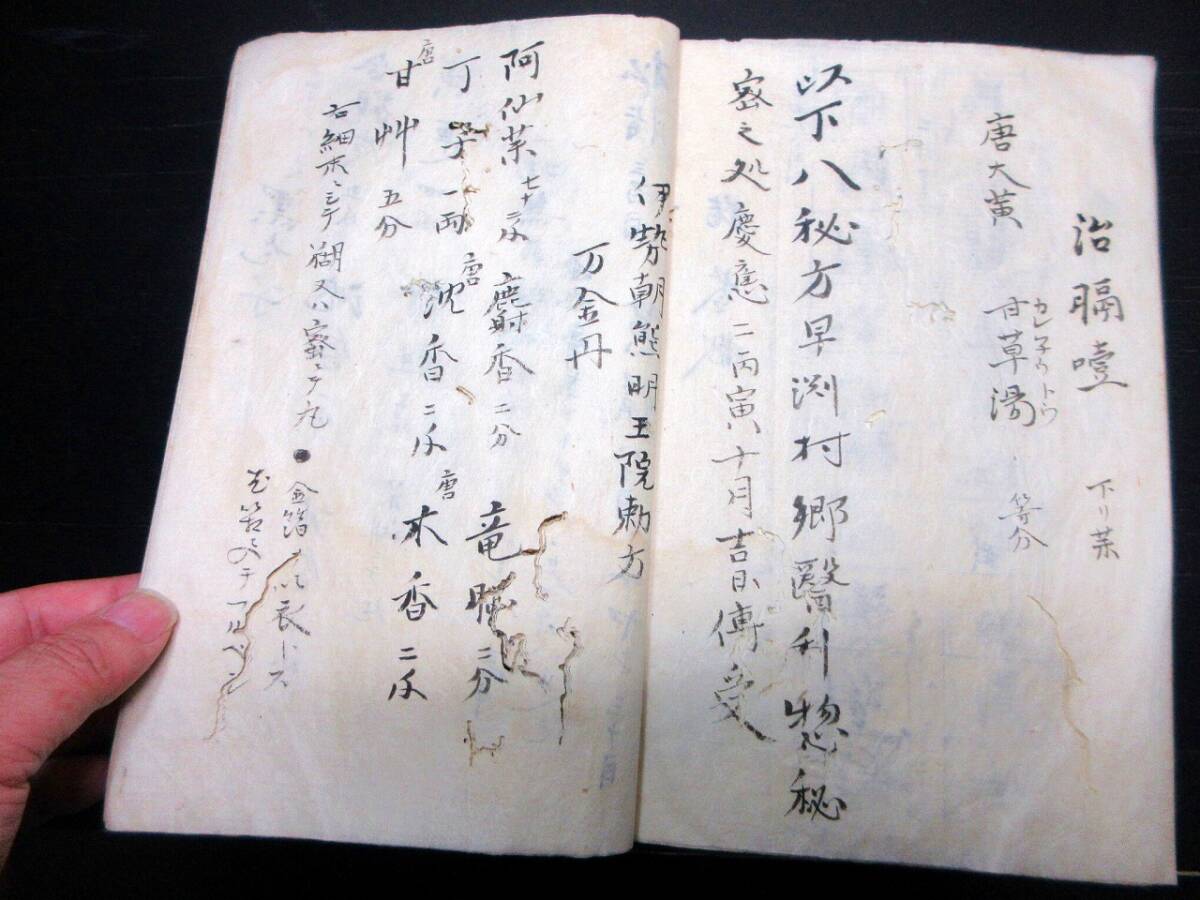 治膈噎 下リ薬
唐大黄 甘草湯 カンゾウトウ 等分
以下八秘方早渕村郷醫利惣秘
密之処慶應二丙寅十月吉日傳受
伊勢朝熊明王院勅方
万金丹
阿仙薬 七十 麝香二分 竜 二分
丁子一両 唐沈香二 唐木香二
唐甘艸五分
右細末ニシテ糊又ハ蜜ニテ丸 ● 金箔ヲ以衣トス